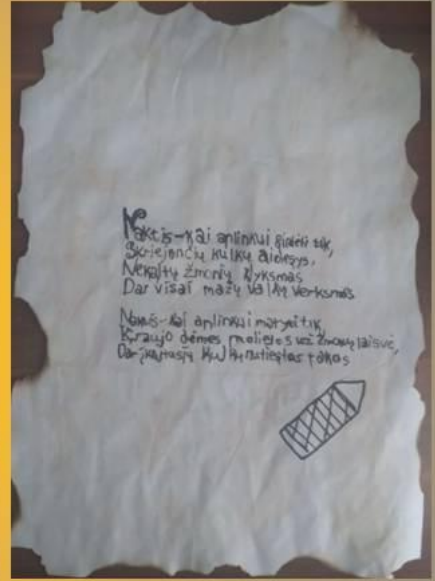 Naktis-kai aplinkui girdėti tik,
Skriejančių kulkų aidesys,
Nekaltų žmonių klyksmas
Dar visai mažų vaikų verksmas
Naktis-kai aplinkui matyti tik
Kraujo dėmes žmonių laisvė,
Dar įkaitusių kulkų nutiestas takas